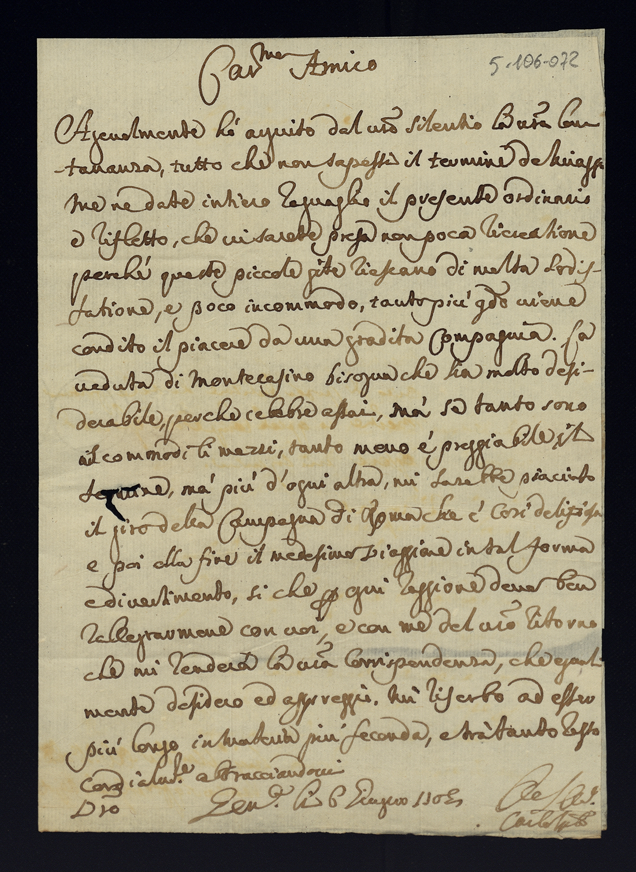 Car.mo Amico
5-106-072
Agevolmente hò arguito dal vro̅ silentio la vra̅ lon
-tananza, tutto che non sapessi il termine
me ne date intiero raguaglio il presente ordinario
e rifletto, che vi sarete presa non poca ricreatione
perché queste piccole gite riescano di molta sodis-
fatione, e poco incommodo, tanto più qdo̅ viene
condito il piacere da una gradita Compagnia. La
veduta di Montecasino bisogna che sia molto desi-
derabile, perche celebre assai, mà se tanto sono
commodi li mezzi, tanto meno é preggiabile il
termine, mà più d'ogni altra, mi sarebbe piaciuto
il giro della Campagna di Roma che é così delitiosa
e poi alla fine il medesimo viaggiare in tal forma
e divertimento, si che ogni raggione devo ben
rallegrarmene con voi, e con me del vro̅ ritorno
che mi renderà la vra̅ corrispondenza, che equal-
mente desidero ed apprezzo. Mi riserbo ad esser
più longo in materia più feconda, e trà tanto resto
cordialm.e abbracciandovi
Gen.a li 6 Giugno